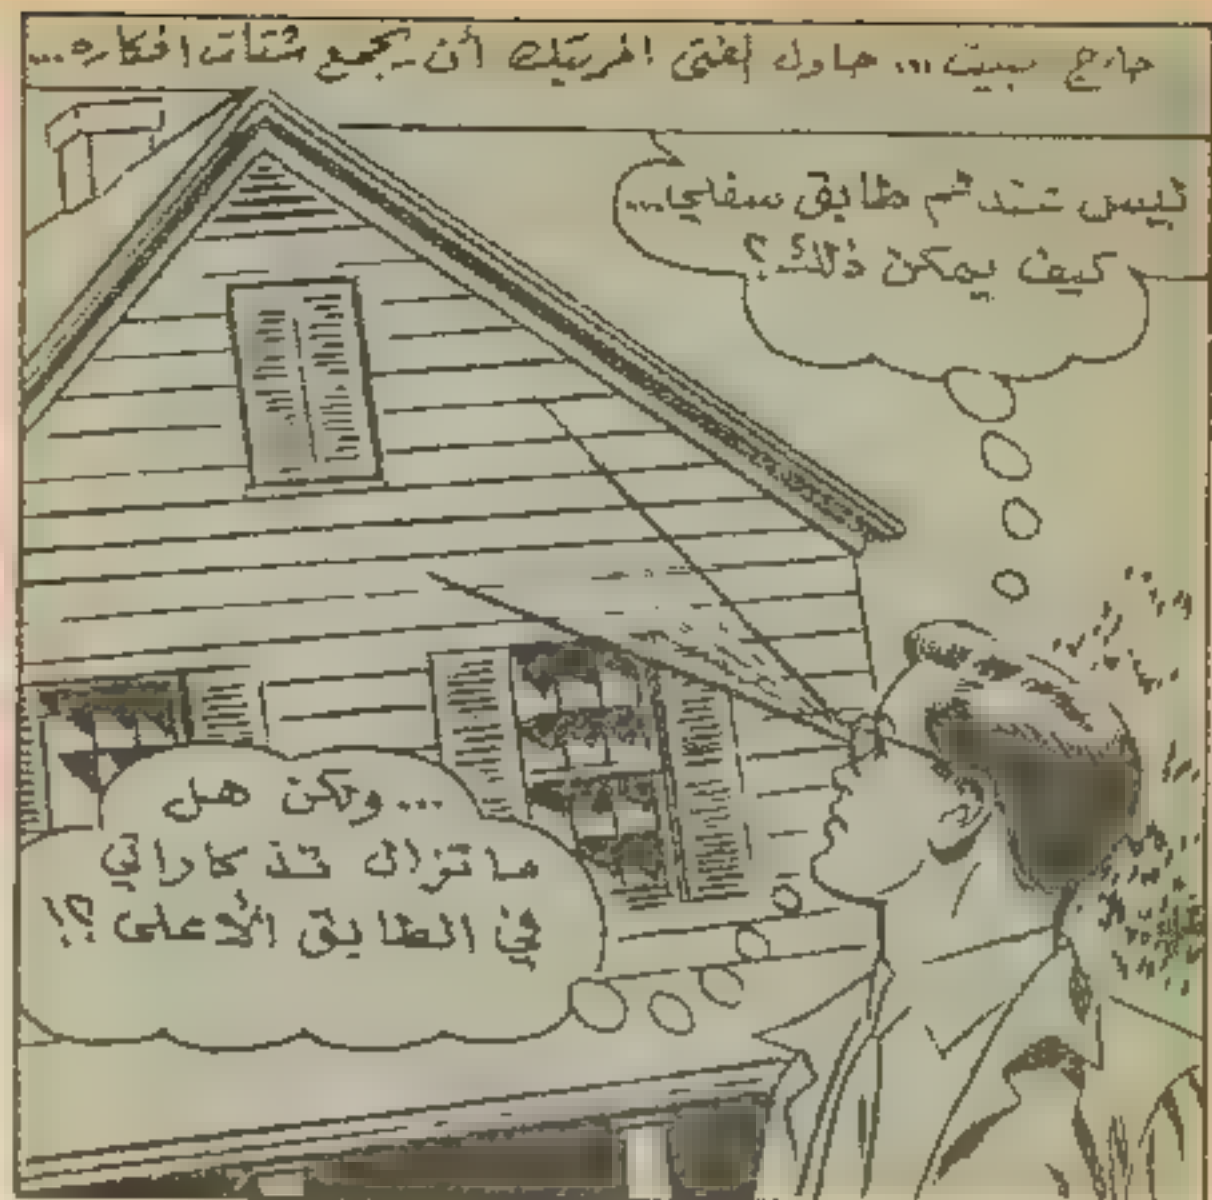 خارج البيت ... حاول الفتى أن يجمع شتات افكاره ...
ليس ثم طابق سفلي ...
كيف يمكن ذلك؟
... ولكن هل
ما تزال تذكاراتي
في الطابق الأعلى ؟!